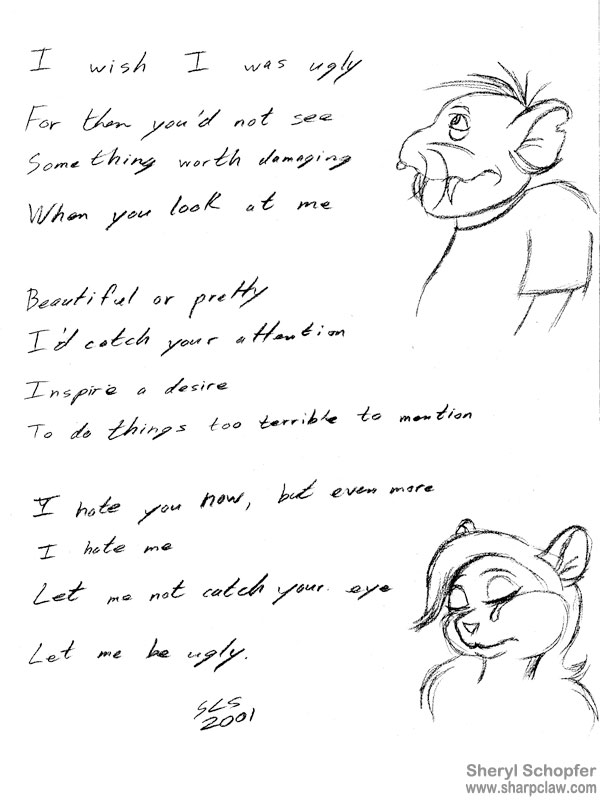 I wish I was ugly
For then you'd not see
Something worth damaging
When you look at me
Beautiful or pretty
I'd catch your attention
Inspire a desire
To do things too terrible to mention
I hate you now, but even more
I hate me
Let me not catch your eye
Let me be ugly.
SLS
2001
Sheryl Schopfer
www.sharpclaw.com